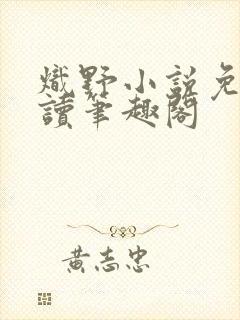 熾野小說免
讀筆趣閣
黃志忠